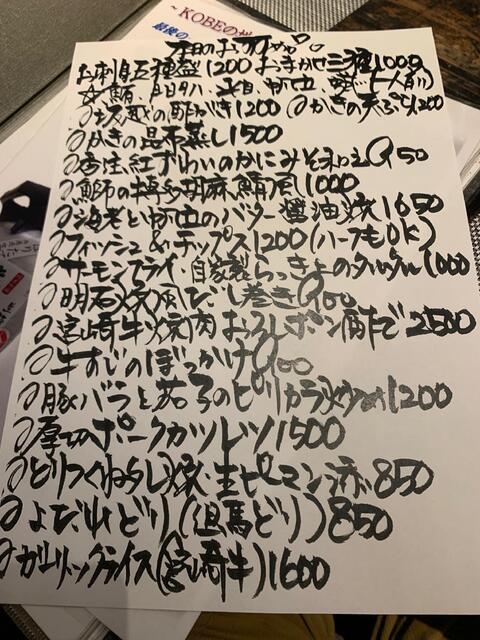 ~KOBEの
最後の
本日のおすすめ
お刺身五種盛1200 おまかせ三種1000
☆鮪
の酢がき1200 かきの天ぷら1200
かきの昆布蒸し1500
香住紅ずわいのかにみそ和え
鰤の博多胡麻鯖風1000
海老と帆立のバター醤油焼1650
フィッシュ&チップス1200(ハーフもOK)
サーモンフライ 自家製らっきょのタルタル1000
明石焼風だし巻き
宮崎牛焼肉おろしポン酢で2500
牛すじのぼっかけ
豚バラと茄子のピリカラ炒め1200
厚切ポークカツレツ1500
とりつくねてらし焼 生ピーマン添850
よだれどり(但馬どり)850
ガーリックライス(宮崎牛)1600